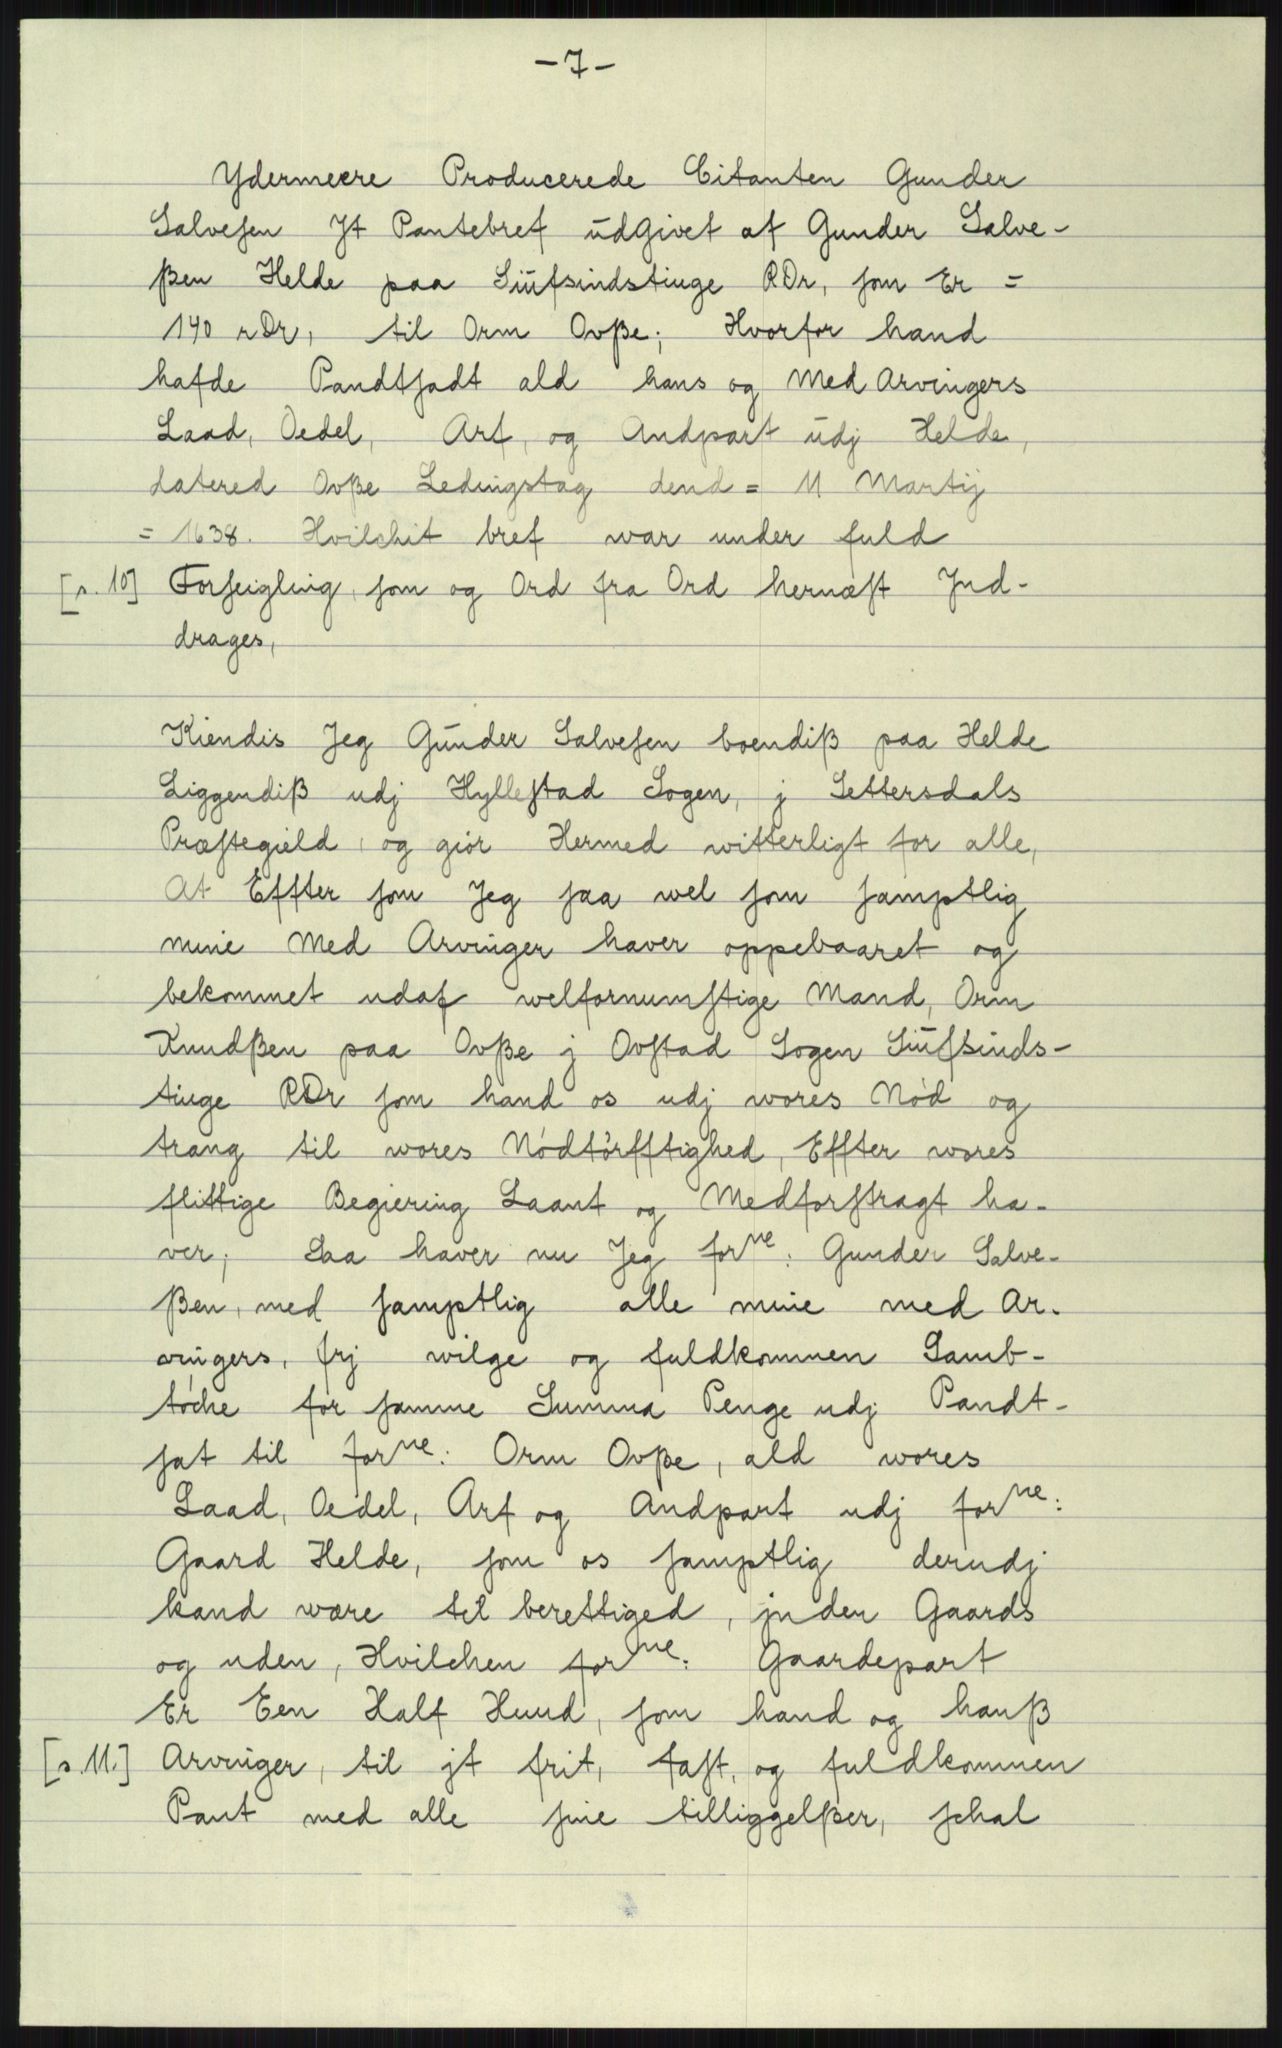 -7-
Ydermeere Producerede Citanten Gunder
Salvesen Jt Pantebref ūdgivet af Gunder Salve-
ßen Helde paa Siūfsindstiuge RDr, som Er =
140 rDr, til Orm Ovße; Hvorfor hand
hafde Pandtsadt ald hans og Med Arvingers
Laad, Oedel, Arf, og Andpart ūdj Helde,
datered Ovße Ledingstag dend = 11 Martij
= 1638. Hvilchit bref war under fuld
[s. 10] Forseigling, som og Ord fra Ord hernæst Ind-
drages,
Kiendis Jeg Gūnder Salvesen boendiß paa Helde
Liggendiß udj Hyllestad Sogen, j Settersdals
Præstegield, og giör Hermed witterligt for alle,
At Effter som Jeg saa wel som samptlig
mine Med Arvinger haver oppebaaret og
bekommet udaf welfornumstige Mand, Orm
Knudßen paa Ovße j Ovstad Sogen Siūfsinds-
tiuge RDr som hand os udj wores Nöd og
trang til wores Nödtörfftighed, Effter wores
flittige Begiering Laant og Medforstragt ha-
ver; Saa haver nu Jeg forne: Gunder Salve-
ßen, med samptlig alle mine med Ar-
vingers, frj wilge og fuldkommen Samb-
töche for samme Summa Penge udj Pandt-
sat til forne: Orm Ovße, ald wores
Laad, Oedel, Arf og Andpart udj forne:
Gaard Helde, som os samptlig derudj
kand være til berettiged, jnden Gaards
og uden, Hvilchen forne: Gaardepart
Er Een Half Huud, som hand og hanß
[s. 11.] Arvinger, til jt frit, fast, og fuldkommen
Pant med alle sine tilliggelßer, schal